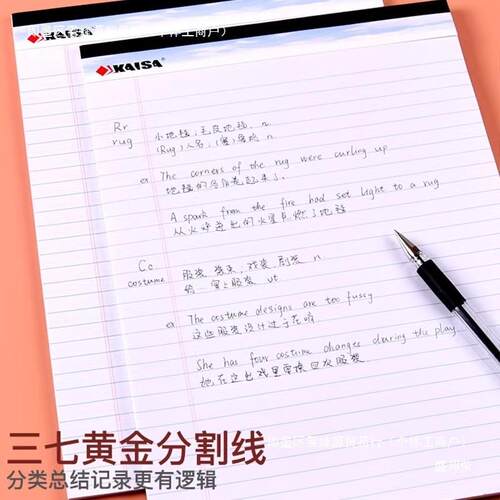 KAISA
KAISA
Rr
rug
小地毯;毛皮地毯. n
(Rug)人名;
n
ex
The corners of the rug were curling up
地毯的
A spark from the fire had set light to a rug
地毯
Cc
costume
服装 装束,戏装,剧装 n
给 穿上服装 vt
ex
The costume designs are too fussy
这些服装设计过于花哨
She has four costume changes during the play
她在
戏里要换四次服装
三七黄金分割线
分类总结记录更有逻辑